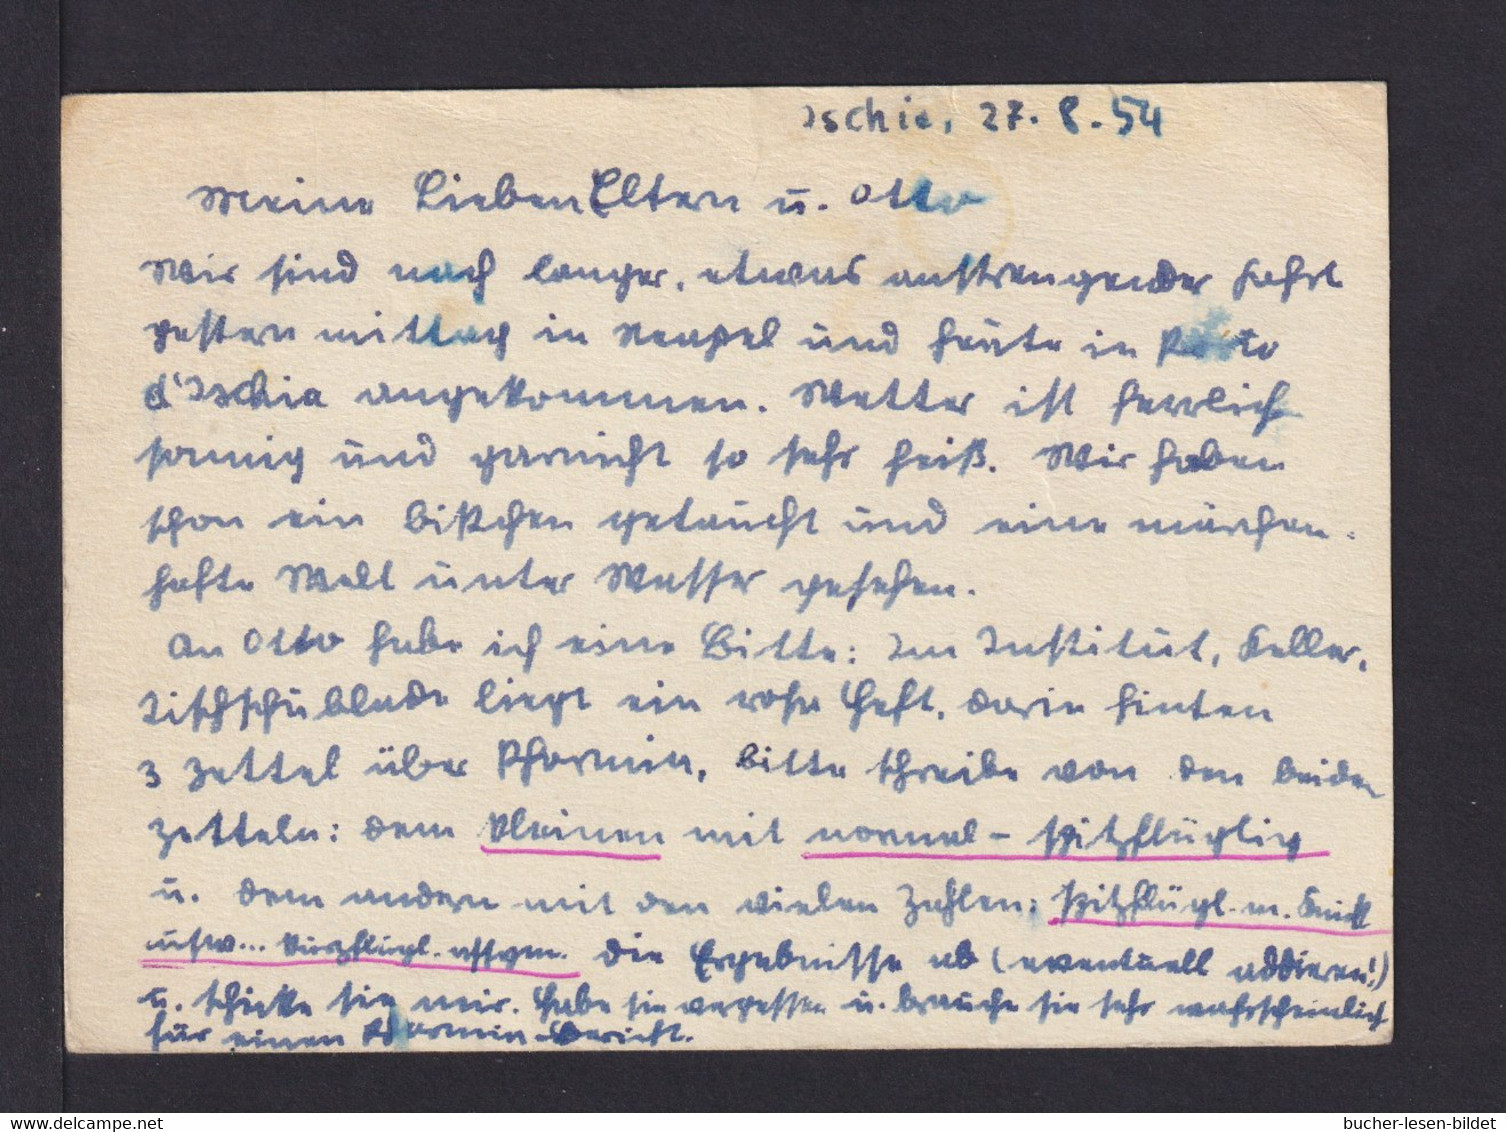 Ischia, 27. 8. 54
Meine Lieben Eltern u. Otto
Wir sind nach langer, etwas anstrengender Fahrt
gestern mittag in Neapel und heute in Porto
d'Ischia angekommen. Wetter ist herrlich
sonnig und garnicht so sehr heiß. Wir haben
schon ein bißchen getaucht und eine märchen-
hafte Welt unter Wasser gesehen.
An Otto habe ich eine Bitte: Im Institut, Keller,
Tischschublade liegt ein rosa Heft, darin hinten
3 Zettel über Phormin, bitte schreibe von den beiden
Zetteln: dem kleinen mit normal - spitzflüglig
u. dem andern mit den vielen Zahlen: spitzflügl. m. Knick
usw... kurzflügl. assym. die Ergebnisse ab (eventuell addieren!)
u. schicke sie mir. Habe sie vergessen u. brauche sie sehr wahrscheinlich
für einen Phormin-Bericht.
bucher-lesen-bildet